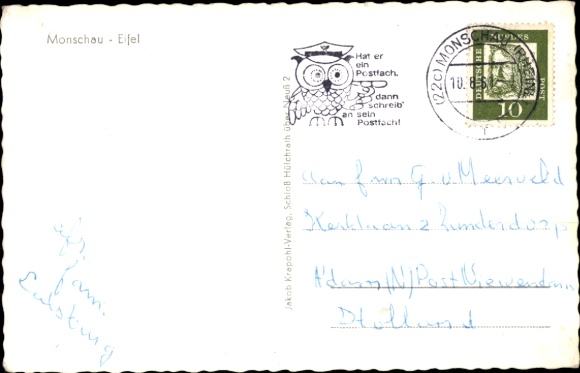 Monschau - Eifel
Hat er
ein
Postfach,
dann
schreib'
an sein
Postfach!
(22c) MONSCHAU (RHEINL)
10.8.61
DEUTSCHE BUNDESPOST
10
Jakob Krapohl-Verlag, Schloß Hülchrath über Neuß 2
Aan fam G. v Meerveld
Kerklaan 2 Zunderdorp
A'dam (N) Post
Holland
afz
fam.